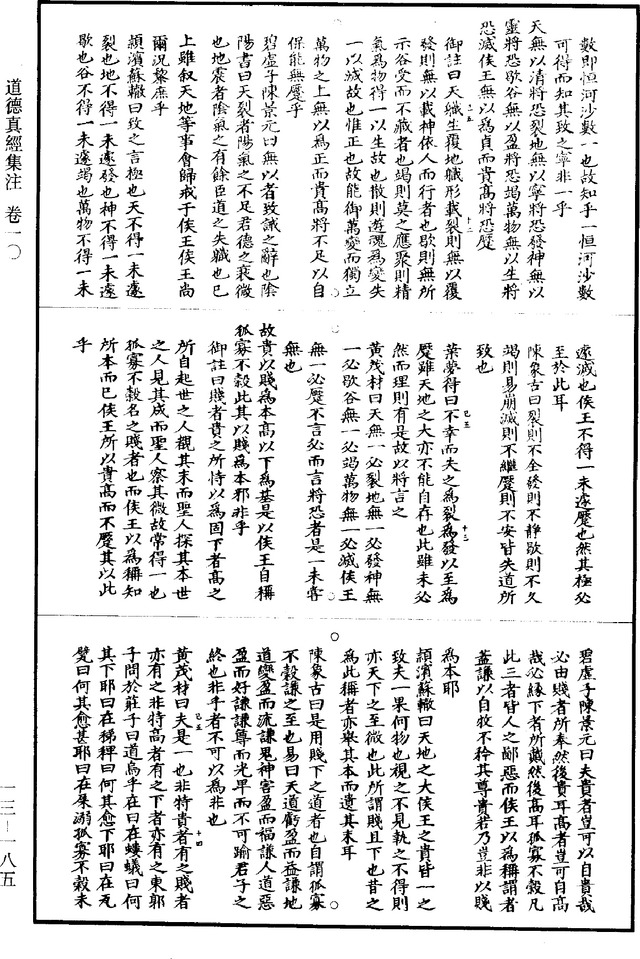 數即恒河沙數一也故知乎一恒河沙數
可得而知其致之寧非一乎
天無以清將恐裂地無以寧將恐發神無以
靈將恐歇谷無以盈將恐竭萬物無以生將
恐滅侯王無以為貞而貴高將恐蹷
御註曰天職生覆地職形載裂則無以覆
發則無以載神依人而行者也歇則無所
示谷受而不藏者也竭則莫之應聚則精
氣為物得一以生故也散則遊魂為變失
一以滅故也惟正也故能御萬變而獨立
萬物之上無以為正而貴高將不足以自
保能無蹷乎
碧虛子陳景元曰無以者致誡之辭也陰
陽書曰天裂者陽氣之不足君德之衰微
也地震者陰氣之有餘臣道之失職也已
上雖叙天地等事會歸戒于侯王侯王尚
爾況黎庶乎
頴濱蘇轍曰致之言極也天不得一未遽
裂也地不得一未遽發也神不得一未遽
歇也谷不得一未遽竭也萬物不得一未
遽滅也侯王不得一未遽蹷也然其極必
至於此耳
陳象古曰裂則不全發則不靜歇則不久
竭則易崩滅則不繼蹷則不安皆失道所
致也
葉夢得曰不幸而失之為裂為發以至為
蹷雖天地之大亦不能自存也此雖未必
然而理則有是故以將言之
黃茂材曰天無一必裂地無一必發神無
一必歇谷無一必竭萬物無一必滅侯王
無一必蹷不言必而言將恐者是一未甞
無也
故貴以賤為本高以下為基是以侯王自稱
孤寡不穀此其以賤為本邪非乎
御註曰賤者貴之所恃以為固下者高之
所自起世之人覩其末而聖人探其本世
之人見其成而聖人察其微故常得一也
孤寡不穀名之賤者也而侯王以為稱知
所本而已侯王所以貴高而不蹷其以此
乎
碧虛子陳景元曰夫貴者豈可以自貴哉
必由賤者所奉然後貴耳高者豈可自高
哉必緣下者所戴然後高耳孤寡不穀凡
此三者皆人之鄙惡而侯王以為稱謂者
蓋謙以自牧不矜其尊貴若乃豈非以賤
為本耶
頴濱蘇轍曰天地之大侯王之貴皆一之
致夫一果何物也視之不見執之不得則
亦天下之至微也此所謂賤且下也昔之
為此稱者亦舉其本而遺其末耳
陳象古曰是用賤下之道者也自謂孤寡
不穀謙之至也易曰天道虧盈而益謙地
道變盈而流謙鬼神害盈而福謙人道惡
盈而好謙謙尊而光卑而不可踰君子之
終也非乎者不可以為非也
黃茂材曰夫是一也非特貴者有之賤者
亦有之非特高者有之下者亦有之東郭
子問於莊子曰道烏乎在曰在螻蟻曰何
其下耶曰在稊稗曰何其愈下耶曰在瓦
甓曰何其愈甚耶曰在屎溺孤寡不穀未
道德真經集注　卷一〇
一三—一八五